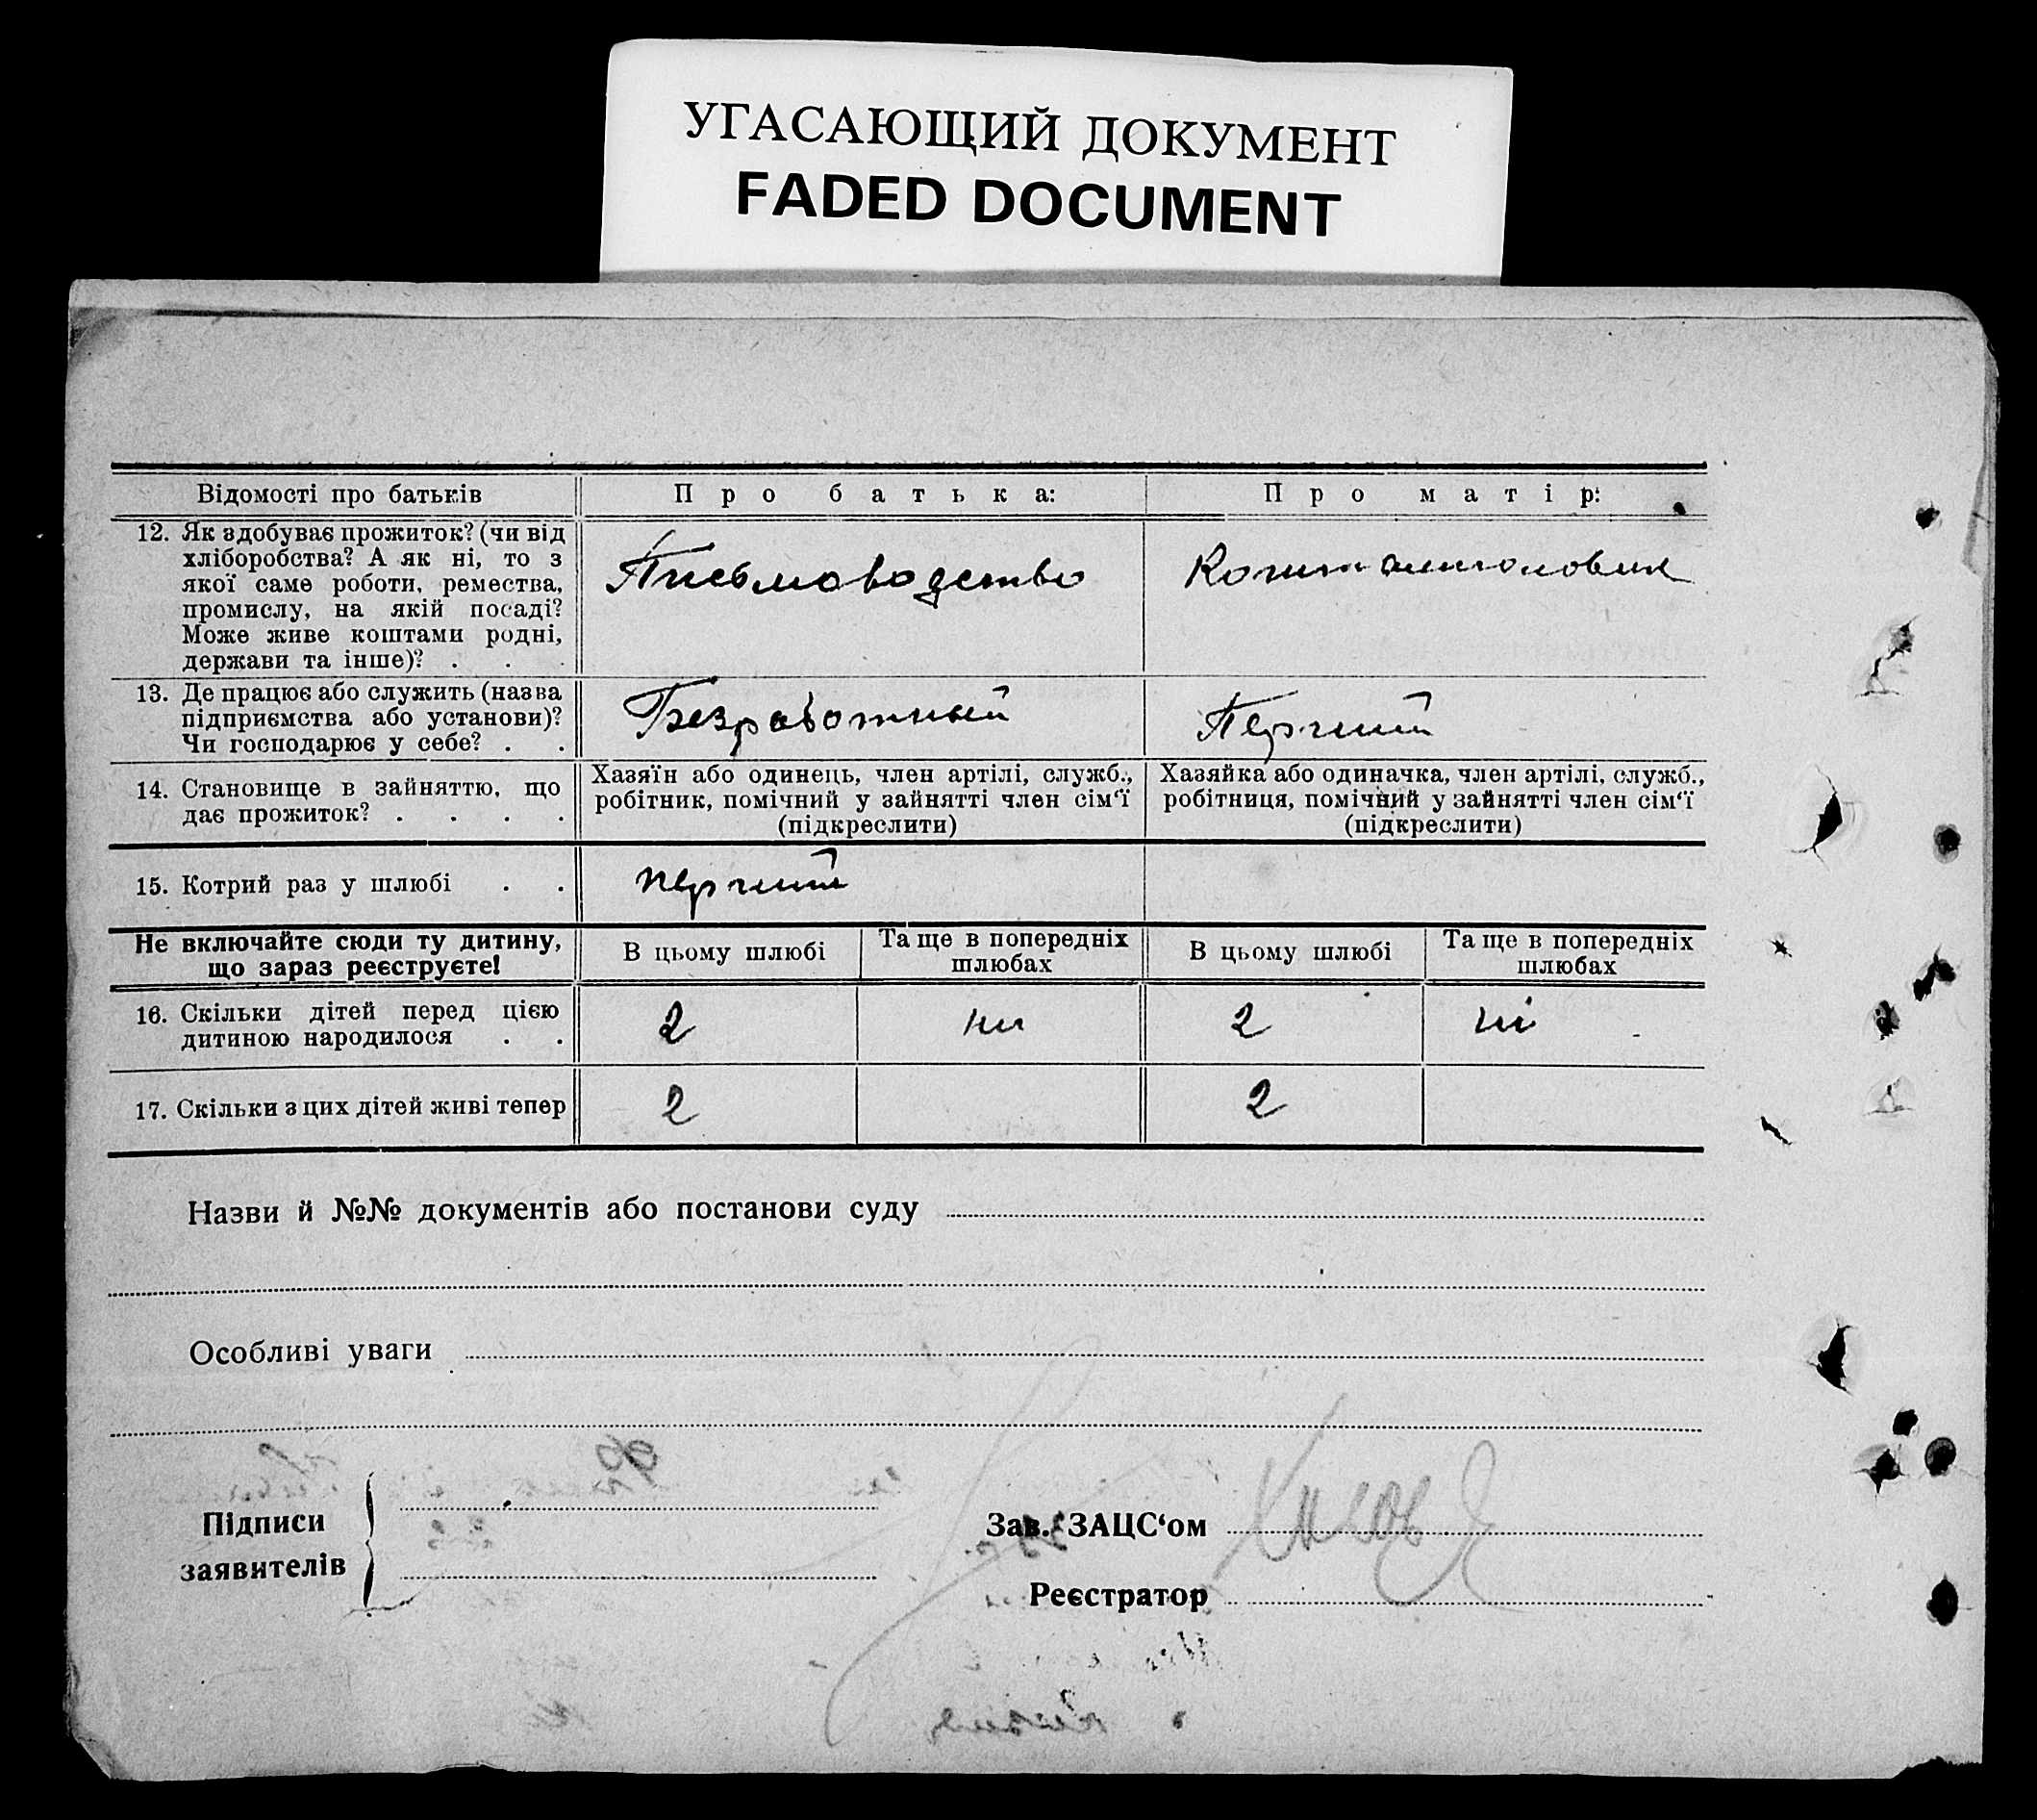 УГАСАЮЩИЙ ДОКУМЕНТ
FADED DOCUMENT
Відомості про батьків
Про батька:
Про матір:
12. Як здобуває прожиток? (чи від
хліборобства? А як ні, то з
якої саме роботи, ремества,
промислу, на якій посаді?
Може живе коштами родні,
держави та інше)? . . .
Письмоводство
13. Де працює або служить (назва
підприємства або установи)?
Чи господарює у себе? . .
Безработный
Перший
14. Становище в зайняттю, що
дає прожиток? . . . .
Хазяїн або одинець, член артілі, служб.,
робітник, помічний у зайнятті член сім‘ї
(підкреслити)
Хазяйка або одиначка, член артілі, служб.,
робітниця, помічний у зайнятті член сім‘ї
(підкреслити)
15. Котрий раз у шлюбі . .
перший
Не включайте сюди ту дитину,
що зараз реєструєте!
В цьому шлюбі
Та ще в попередніх
шлюбах
В цьому шлюбі
Та ще в попередніх
шлюбах
16. Скільки дітей перед цією
дитиною народилося . .
2
ни
2
ні
17. Скільки з цих дітей живі тепер
2
2
Назви й №№ документів або постанови суду
Особливі уваги
Підписи
заявителів
Зав. ЗАЦС‘ом
Реєстратор